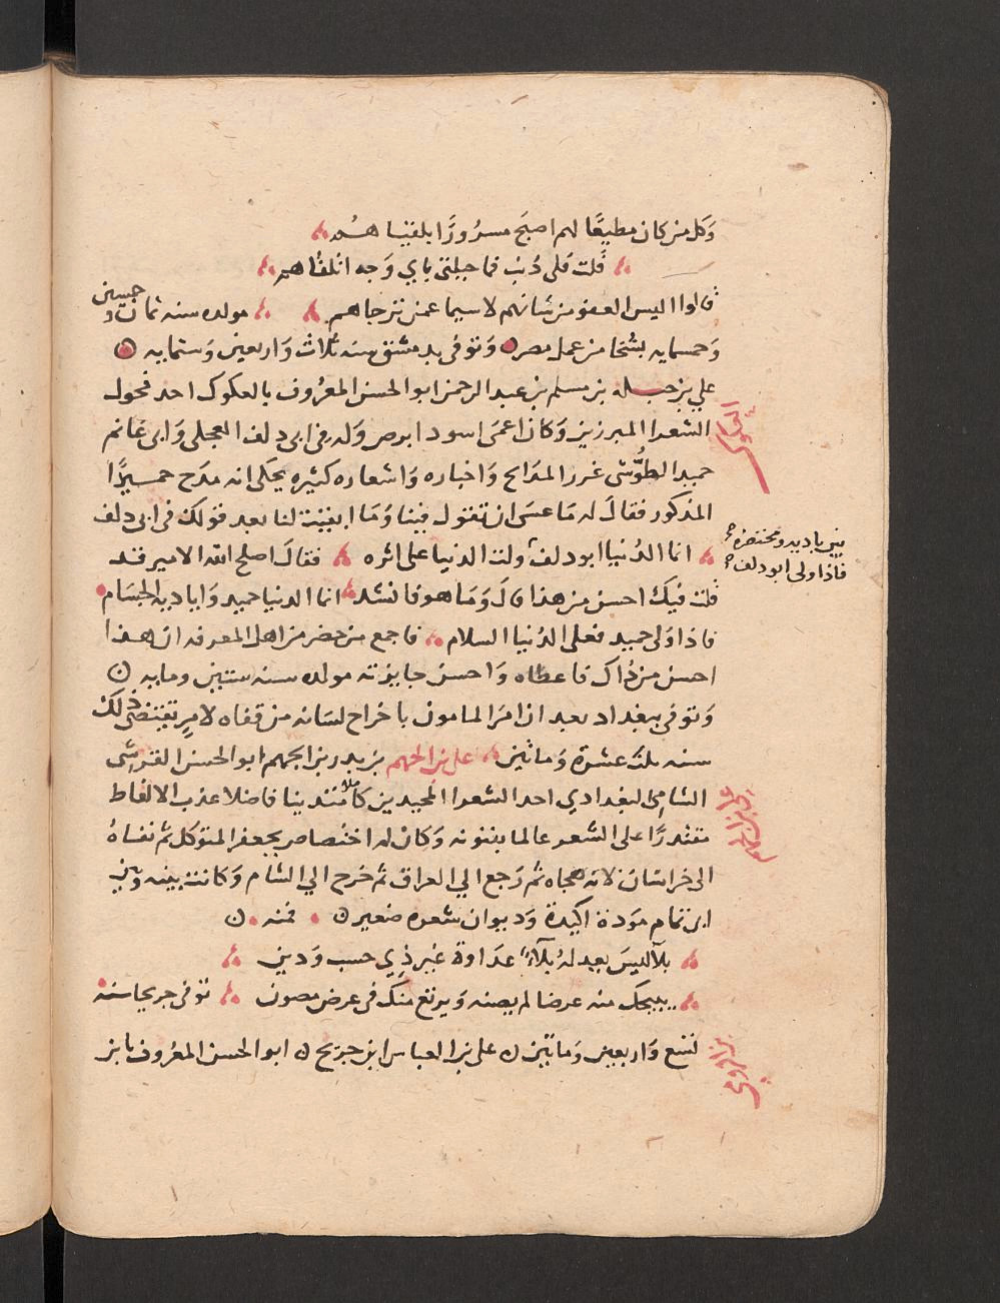 وكل من كان مطيعًا لهم اصبح مسرورًا بلقيا هم
قلت فلى ذنب فما حيلتى باي وجه اتلقاهم
قالوا اليس العفو من شانهم لاسيما عمن ترجاهم مولده سنه ثمان وخمسين
وخمسمايه بشنخا من عمل مصر وتوفى بدمشق سنه ثلاث واربعين وستمايه
علي بن جبله بن مسلم بن عبد الرحمن ابو الحسن المعروف بالعكوك احد فحول
العكوك
الشعرا المبرزين وكان اعمى اسود ابرص وله فى ابى دلف العجلى وابى غانم
حميد الطوسى غرر المدايح واخباره واشعاره كثيره يحكى انه مدح حميدًا
المذكور فقال له ما عسى ان تقول فينا وما ابقيت لنا بعد قولك فى ابى دلف
انما الدنيا ابو دلف ولت الدنيا على اثره فقال اصلح الله الامير قد
بين باديه ومحتضره
فاذا ولى ابو دلف
قلت فيك احسن من هذا قال وما هو فانشد انما الدنيا حميد واياديه الجسام
فاذا ولى حميد فعلى الدنيا السلام فاجمع من حضر من اهل المعرفه ان هذا
احسن من ذاك فاعطاه واحسن جايزته مولده سنه ستين ومايه
وتوفى ببغداد بعد ان امر المامون باخراج لسانه من قفاه لامرٍ تقتضى ذلك
سنه ثلث عشرة وماتين على بن الجهم بن بدر بن الجهم ابو الحسن القرشى
الشامى البغدادي احد الشعرا المجيدين كان متدينا فاضلا عذب الالفاظ
على بن الجهم
مقتدرًا على الشعر عالما بفنونه وكان له اختصاص بجعفر المتوكل ثم نفاهُ
الى خراسان لانه هجاه ثم رجع الي العراق ثم خرج الي الشام وكانت بينه وبين
ابى تمام مودة اكيدة وديوان شعره صغير فمنه
بلآ ليس يعدله بلآء عداوة غير ذي حسب ودين
يبيحك منه عرضا لم يصنه ويرتع منك فى عرض مصون توفى جريحا سنه
تسع واربعين وماتين على بن العباس ابن جريح ابو الحسن المعروف بابن
بن الرومى